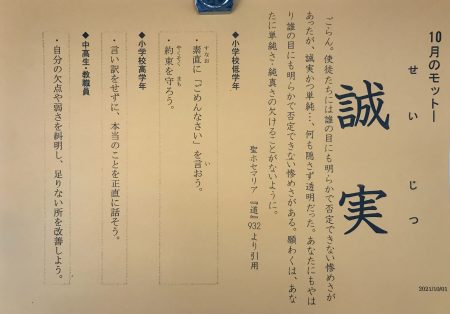 10月のモットー
せいじつ
誠実
ごらん。使徒たちには誰の目にも明らかで否定できない惨めさが
あったが、誠実かつ単純…、何も隠さず透明だった。あなたにもやは
り誰の目にも明らかで否定できない惨めさがある。願わくは、あな
たに単純さ・純真さの欠けることがないように。
聖ホセマリア『道』932より引用
◆小学校低学年
すなお い
・素直に「ごめんなさい」を言おう。
やくそく まも
・約束を守ろう。
◆小学校高学年
・言い訳をせずに、本当のことを正直に話そう。
◆中高生・教職員
・自分の欠点や弱さを糾明し、足りない所を改善しよう。
2021/10/01